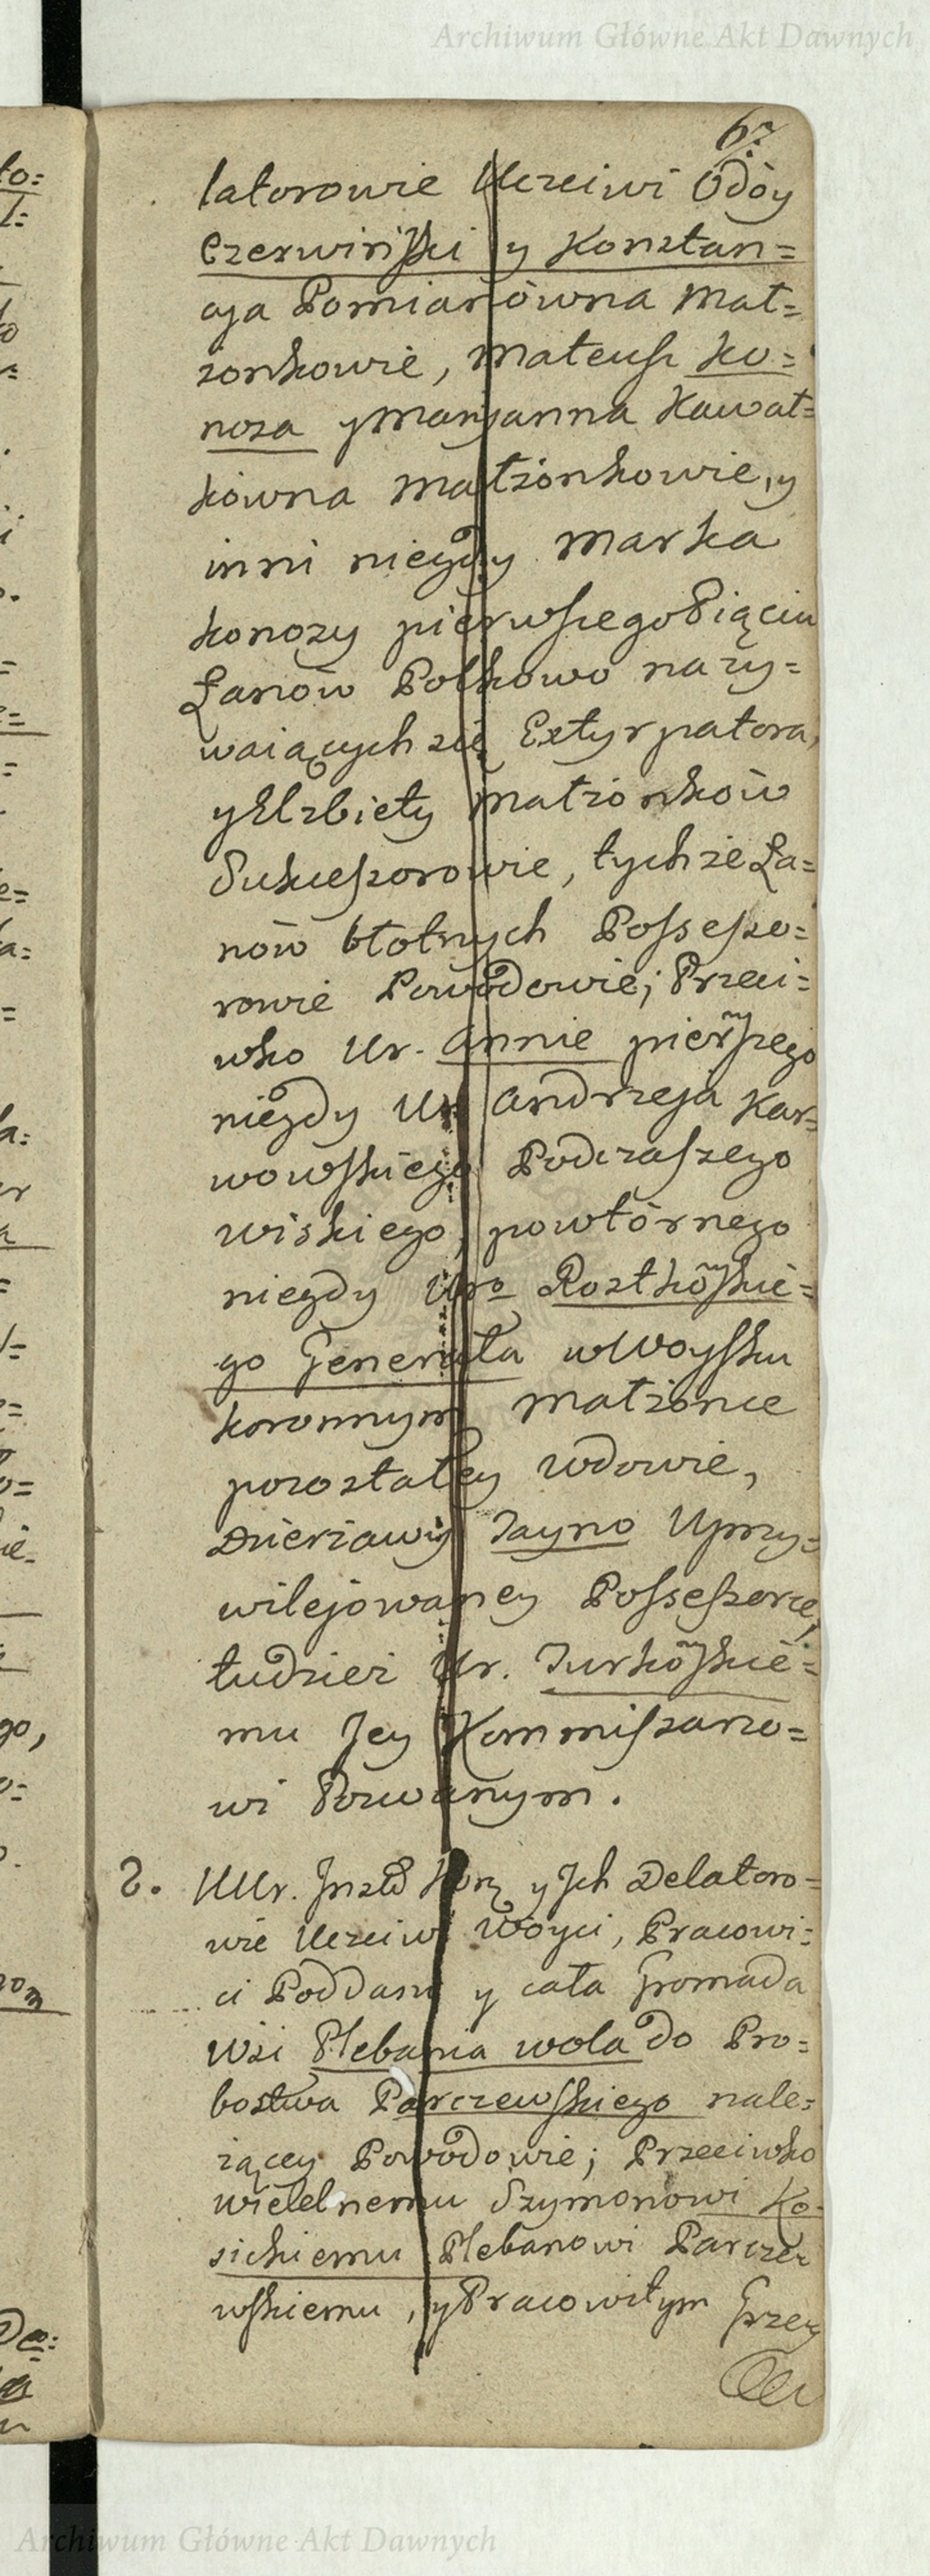 Archiwum Główne Akt Dawnych
67
latorowie Uczciwi
Czerwiński y Konstan=
cya Pomianówna Mał=
żonkowie, Mateusz Ko=
noza y Maryanna Kawał=
kówna Małżonkowie, y
inni niegdy Marka
Konozy pierwszego Pięciu
Łanów Polkowo nazy=
waiących się Extyrpatora,
y Elzbiety Małżonków
Sukcessorowie, tychże Ła=
nów błotnych Possesso=
rowie Powodowie; Przeci=
wko Ur. Annie pierszego
niegdy Ur. Andrzeja Kar=
wowskiego Podczaszego
wiskiego, powtórnego
niegdy Uro Rostkoskie=
go Generała w Woysku
Koronnym Małżonce
pozostałey wdowie,
Dzierżawy Jayno Uprzy=
wilejowaney Possessorce,
tudzież Ur. Turkoskie=
mu Jey Kommissarzo=
wi Pozwanym.
2. UUr. y Jch Delatoro=
wie Uczciwi Woyci, Pracowi=
ci Poddani y cała Gromada
Wsi Plebania wola do Pro=
bostwa Parczewskiego nale=
żącey Powodowie; Przeciwko
wielebnemu Szymonowi Ko=
sickiemu Plebanowi Parcze
wskiemu, y Pracowitym Grzeg
Archiwum Główne Akt Dawnych